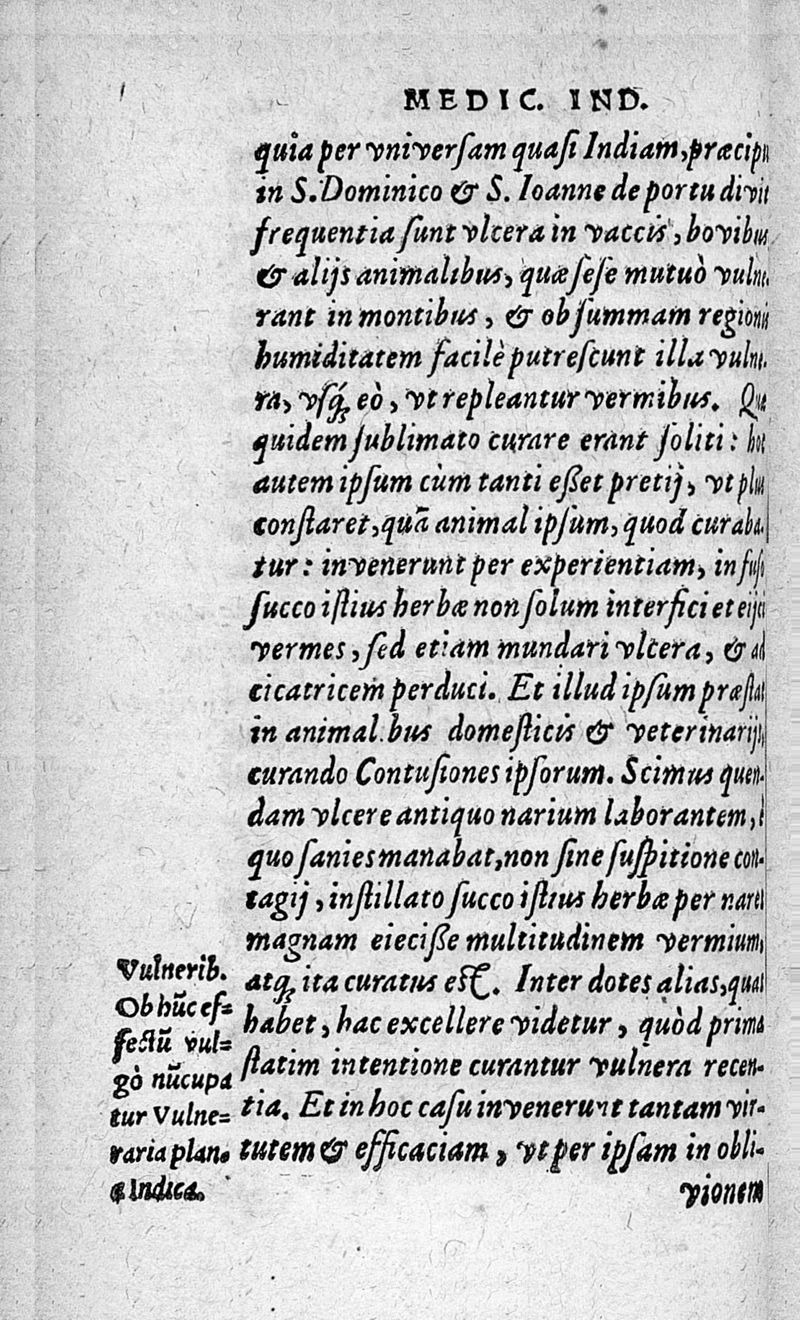 MEDIC. IND.
quia per vniversam quasi Indiam, præcipu
in S. Dominico & S. Ioanne de portu divit
frequentia sunt vlcera in vaccis, bovibus
& alijs animalibus, quæ sese mutuò vulne.
rant in montibus, & ob summam regionis
humiditatem facilè putrescunt illa vulne.
ra, vsq́ꝫ eò, vt repleantur vermibus. Quæ
quidem sublimato curare erant soliti: hoc
autem ipsum cùm tanti esset pretij, vt plus
constaret, quã animal ipsum, quod curaba-
tur: invenerunt per experientiam, infuso
succo istius herbæ non solum interfici et eijci
vermes, sed etiam mundari vlcera, & ad
cicatricem perduci. Et illud ipsum præstat
in animal.bus domesticis & veterinarijs,
curando Contusiones ipsorum. Scimus quen-
dam vlcere antiquo narium laborantem, è
quo sanies manabat, non sine suspitione con-
tagij, instillato succo istius herbæ per nares
magnam eiecisse multitudinem vermium,
atqꝫ ita curatus est. Inter dotes alias, quas
habet, hac excellere videtur, quòd prima
statim intentione curantur vulnera recen-
tia. Et in hoc casu invenerunt tantam vir-
tutem & efficaciam, vt per ipsam in obli-
vionem
Vulnerib.
Ob hũc ef=
fectũ vul=
gò nũcupa
tur Vulne=
raria plan.
a Indica.